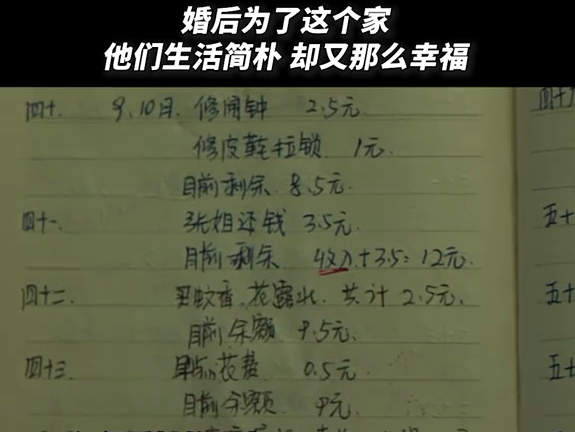 婚后为了这个家
他们生活简朴 却又那么幸福
四十、 9、10月、修闹钟 2.5元
修皮鞋拉锁 1元
目前剩余 8.5元
四十一、 张姐还钱 3.5元
目前剩余 收入+3.5=12元
四十二、 买蚊香、花露水 共计2.5元
目前余额 9.5元
四十三、 早点花费 0.5元
目前余额 9元
四十
五十
五十
五